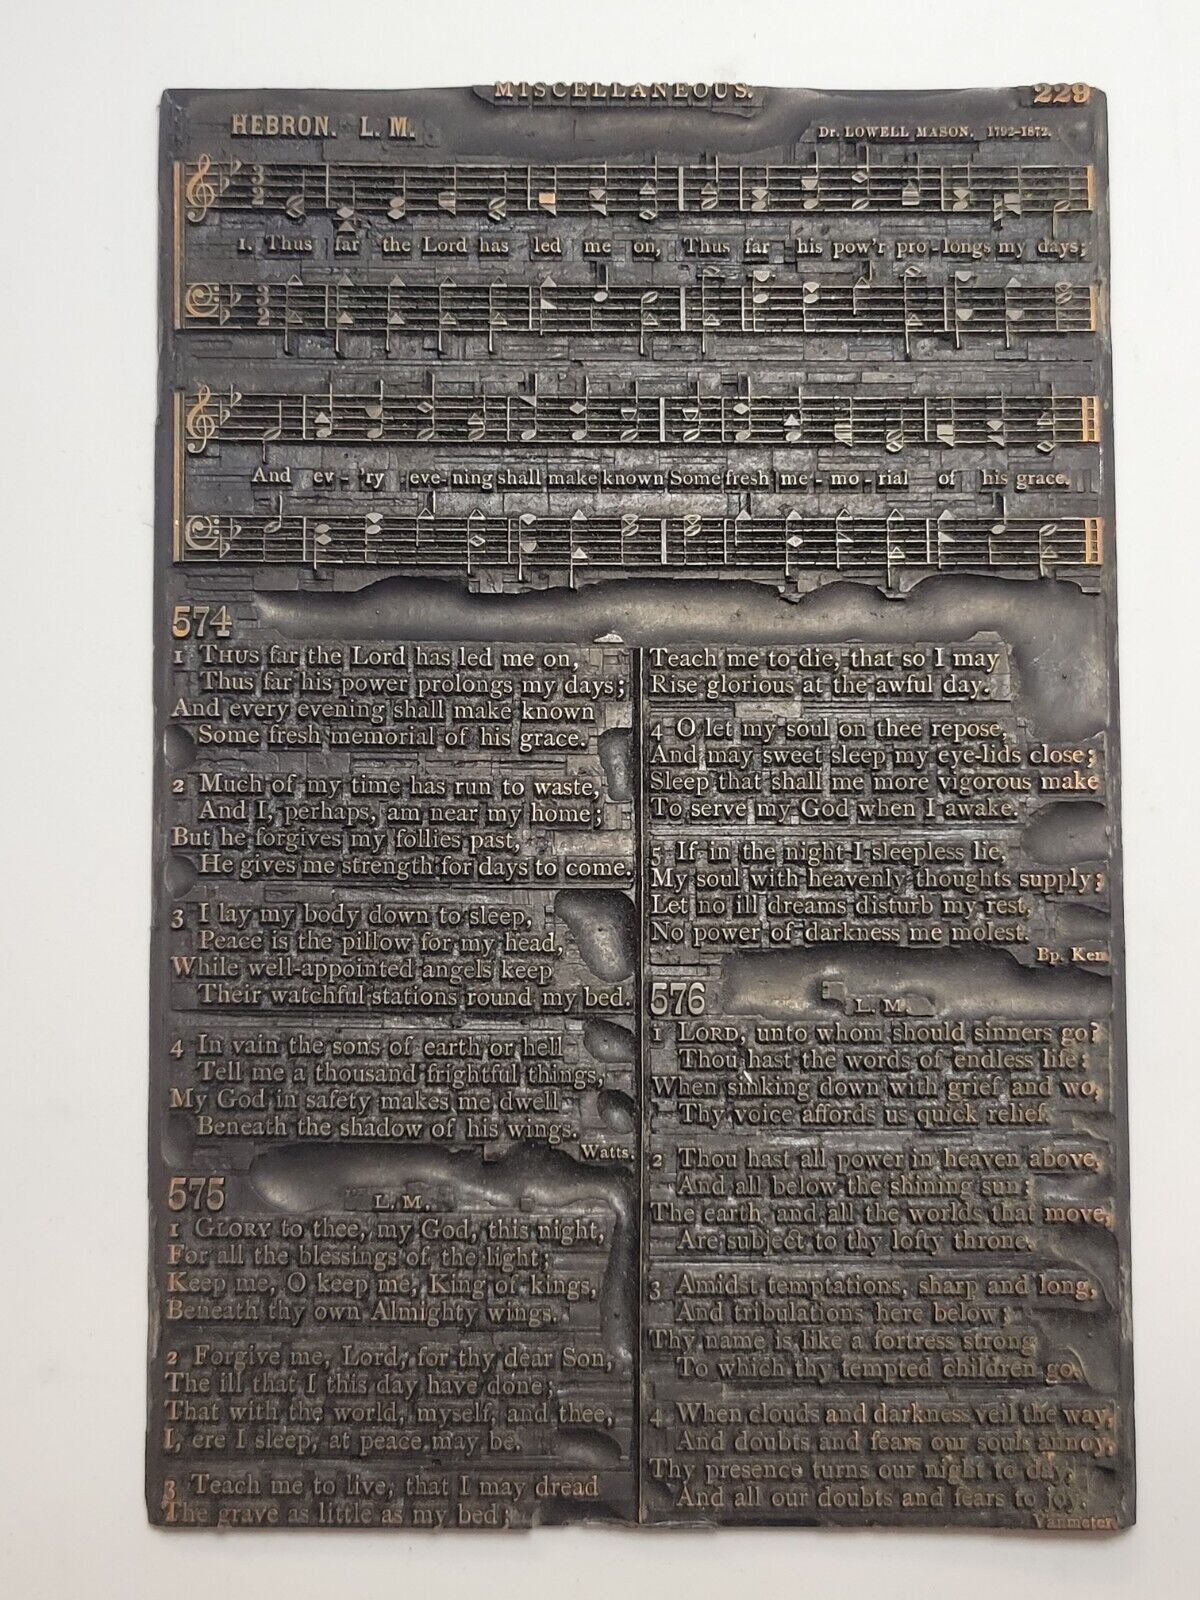 MISCELLANEOUS. 229
HEBRON. L. M. Dr. LOWELL MASON. 1792-1872.
1. Thus far the Lord has led me on, Thus far his pow'r pro-longs my days;
And ev-'ry eve-ning shall make known Some fresh me-mo-rial of his grace.
574
1 THUS far the Lord has led me on,
Thus far his power prolongs my days;
And every evening shall make known
Some fresh memorial of his grace.
2 Much of my time has run to waste,
And I, perhaps, am near my home;
But he forgives my follies past,
He gives me strength for days to come.
3 I lay my body down to sleep,
Peace is the pillow for my head,
While well-appointed angels keep
Their watchful stations round my bed.
4 In vain the sons of earth or hell
Tell me a thousand frightful things,
My God in safety makes me dwell
Beneath the shadow of his wings.
Watts.
575 L. M.
1 GLORY to thee, my God, this night,
For all the blessings of the light;
Keep me, O keep me, King of kings,
Beneath thy own Almighty wings.
2 Forgive me, Lord, for thy dear Son,
The ill that I this day have done;
That with the world, myself, and thee,
I, ere I sleep, at peace may be.
3 Teach me to live, that I may dread
The grave as little as my bed;
Teach me to die, that so I may
Rise glorious at the awful day.
4 O let my soul on thee repose,
And may sweet sleep my eye-lids close;
Sleep that shall me more vigorous make
To serve my God when I awake.
5 If in the night I sleepless lie,
My soul with heavenly thoughts supply;
Let no ill dreams disturb my rest,
No power of darkness me molest.
Bp. Ken
576 L. M.
1 LORD, unto whom should sinners go?
Thou hast the words of endless life:
When sinking down with grief and wo,
Thy voice affords us quick relief.
2 Thou hast all power in heaven above,
And all below the shining sun;
The earth, and all the worlds that move,
Are subject to thy lofty throne.
3 Amidst temptations, sharp and long,
And tribulations here below;
Thy name is like a fortress strong
To which thy tempted children go.
4 When clouds and darkness veil the way,
And doubts and fears our souls annoy,
Thy presence turns our night to day,
And all our doubts and fears to joy.
Vanmeter.